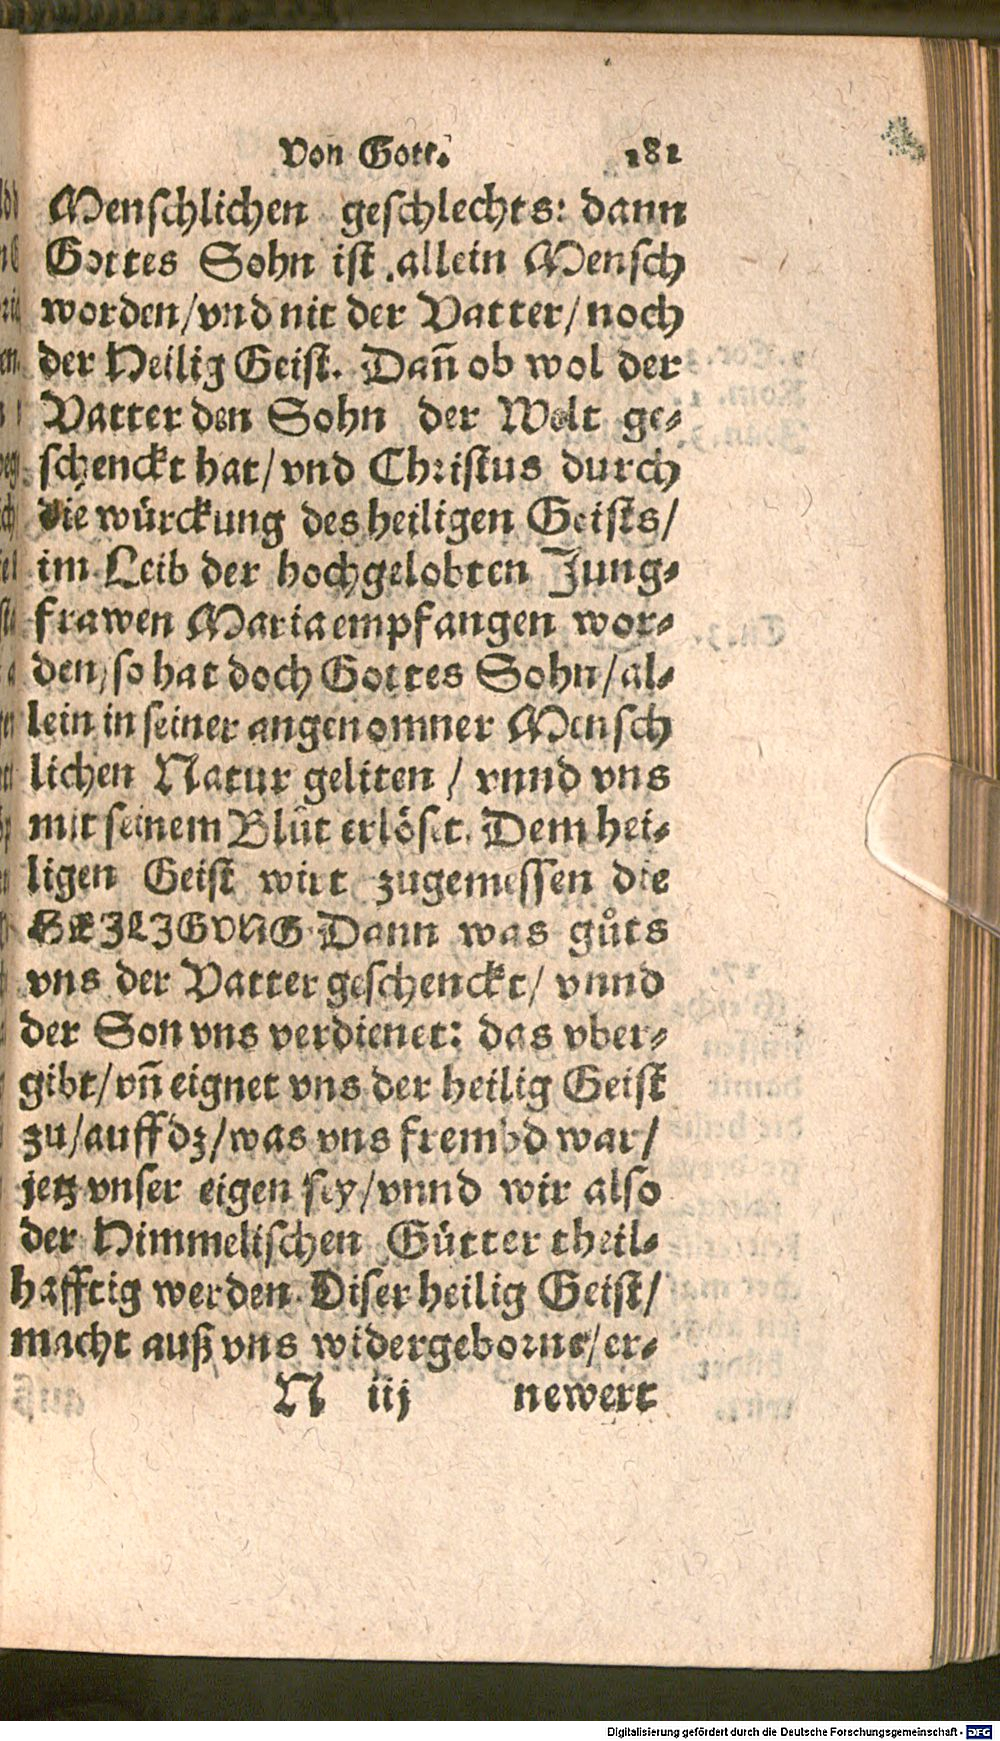 Von Gott. 181
Menschlichen geschlechts: dann
Gottes Sohn ist allein Mensch
worden/vnd nit der Vatter/noch
der Heilig Geist. Dañ ob wol der
Vatter den Sohn der Welt ge-
schenckt hat/vnd Christus durch
die würckung des heiligen Geists/
im Leib der hochgelobten Jung-
frawen Maria empfangen wor-
den/so hat doch Gottes Sohn/al-
lein in seiner angenomner Mensch
lichen Natur geliten/vnnd vns
mit seinem Blůt erlöset. Dem hei-
ligen Geist wirt zugemessen die
HEILIGVNG. Dann was gůts
vns der Vatter geschenckt/vnnd
der Son vns verdienet: das vber-
gibt/vñ eignet vns der heilig Geist
zu/auff dz/was vns frembd war/
jetz vnser eigen sey/vnnd wir also
der Himmelischen Gütter theil-
hafftig werden. Diser heilig Geist/
macht auß vns widergeborne/er-
N iij newert
Digitalisierung gefördert durch die Deutsche Forschungsgemeinschaft - DFG